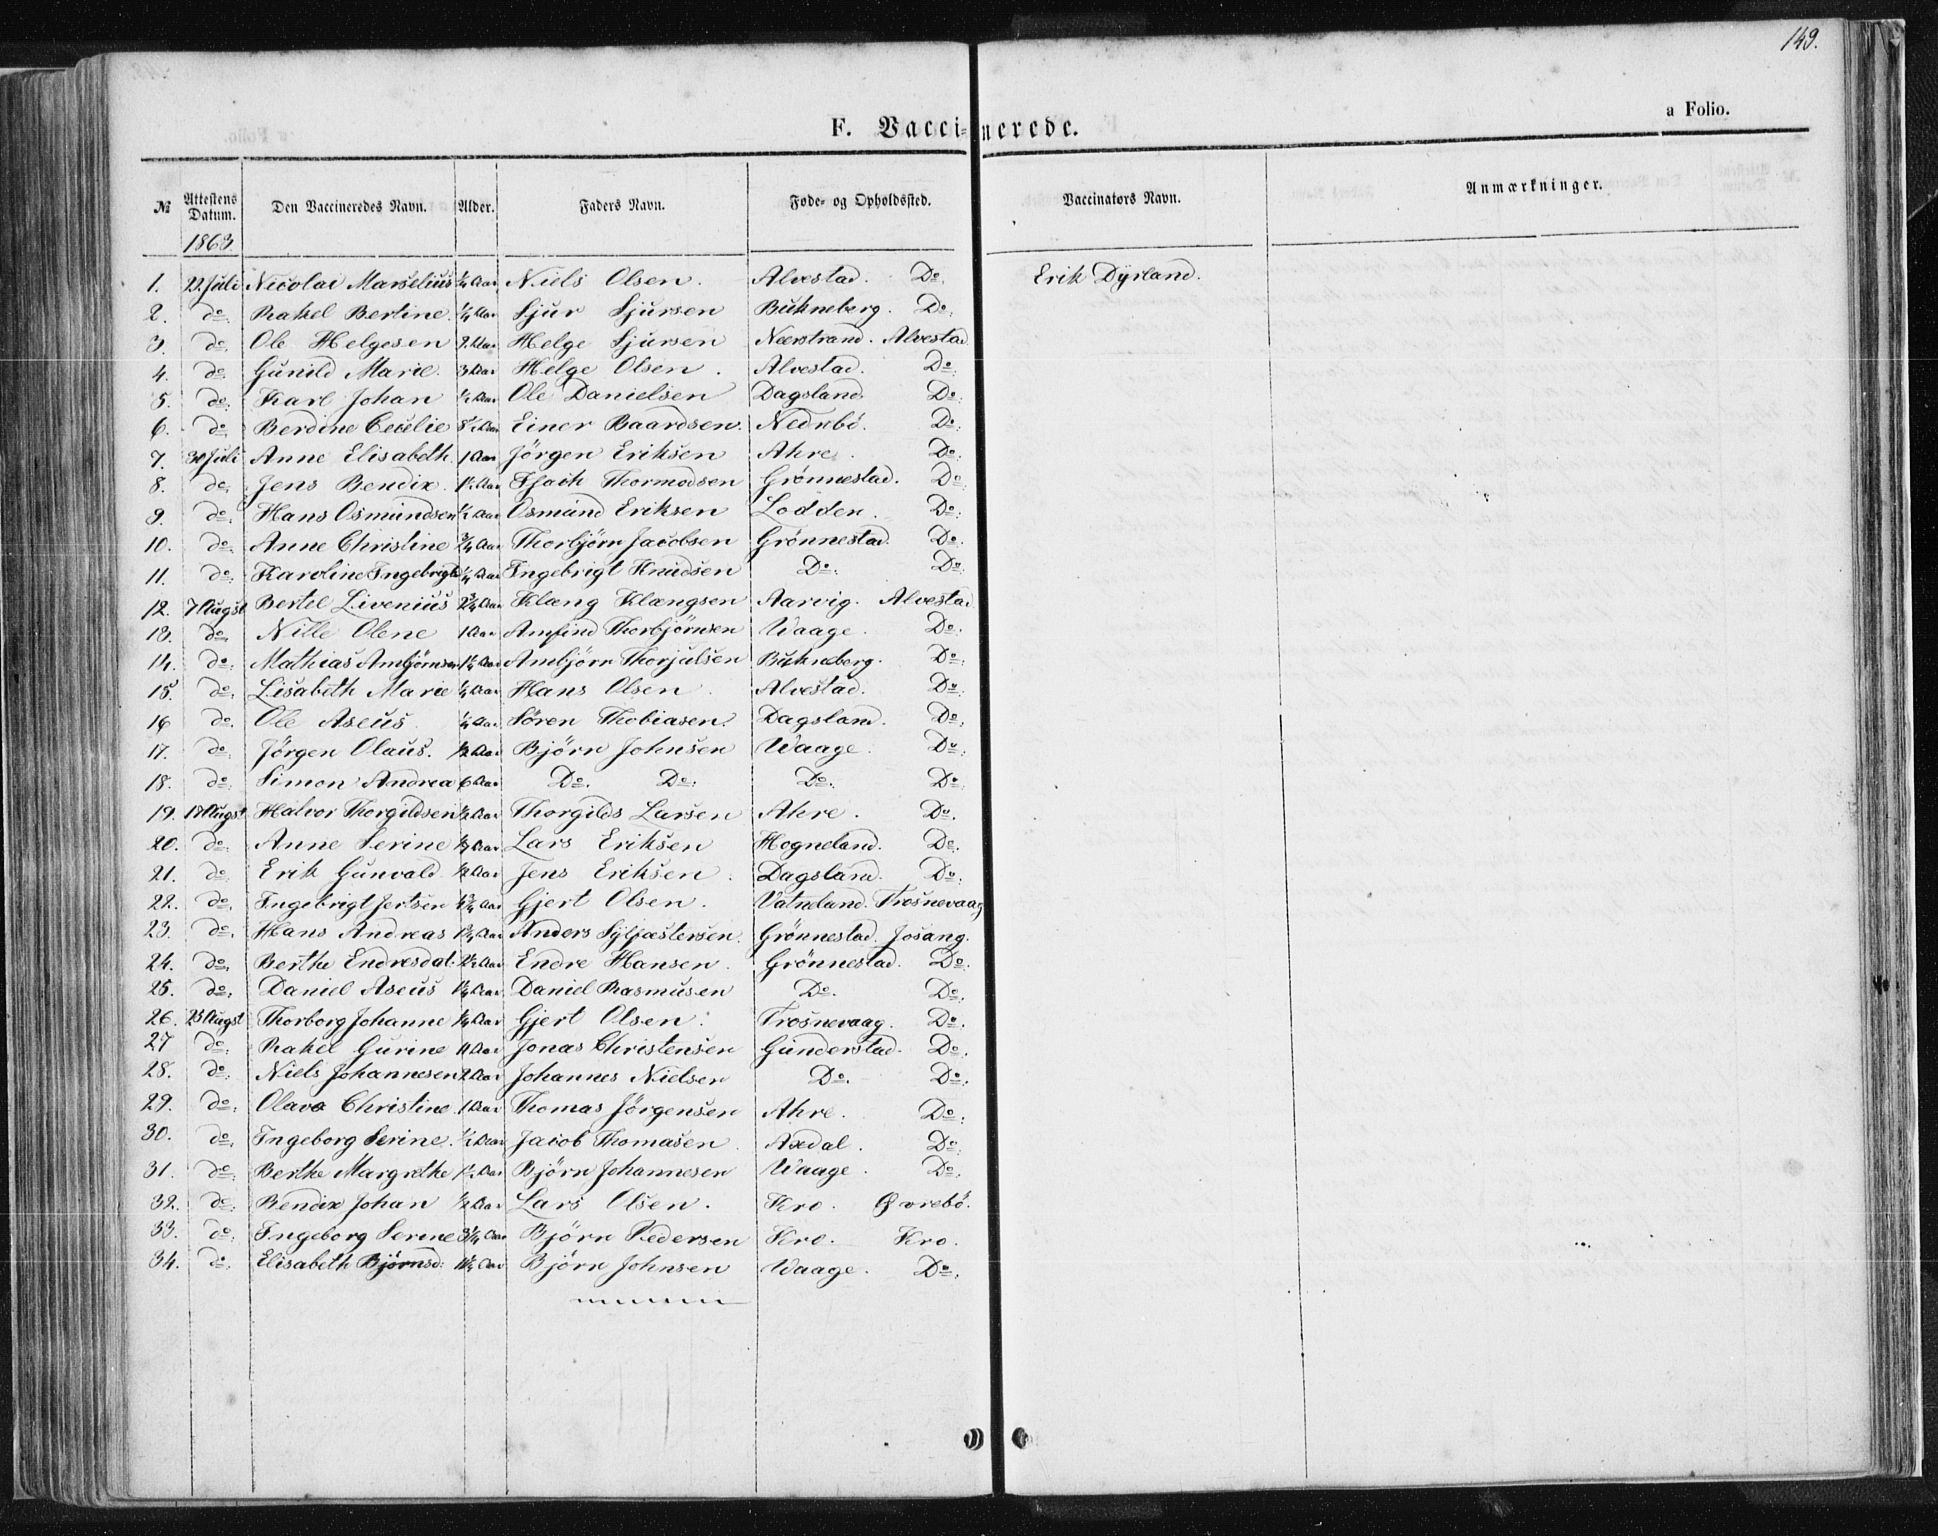 149.
F. Vaccinerede.
a Folio.
№ Attestens Datum. Den Vaccineredes Navn. Alder. Faders Navn. Føde- og Opholdssted. Vaccinators Navn. Anmærkninger.
1863
1. 22 Juli Nicolai Marselius ¼ Aar Niels Olsen. Alvestad. Do. Erik Dyrland.
2. do. Rakel Bertine. ¼ Aar Sjur Sjursen Bukneberg. Do.
3. do. Ole Helgesen 2 Aar Helge Sjursen Nærstrand. Alvestad
4. do. Gunild Marie. 3 Aar Helge Olsen. Alvestad. Do.
5. do. Karl Johan ½ Aar Ole Danielsen Dagsland Do.
6. do. Berdine Cecilie Aar Einer Baardsen. Nedrebö. Do.
7. 30 Juli Anne Elisabeth. 1 Aar Jörgen Eriksen Ahre. Do.
8. do. Jens Bendix. 1½ Aar Thormodsen Grönnestad. Do.
9. do. Hans Osmundsen ½ Aar Osmund Eriksen Lodden. Do.
10. do. Anne Christine ¾ Aar Thorbjörn Jacobsen Grönnestad. Do.
11. do. Karoline Ingebrigtd ¼ Aar Ingebrigt Knudsen Do. Do.
12. 7 Augst Bertel Livenius 2¾ Aar Klæng Klængsen Aarvig. Alvestad
13. do. Nille Olene 1 Aar Amfind Thorbjörnsen Waage. Do.
14. do. Mathias Ambjörnsen 1¼ Aar Ambjörn Thorjulsen Bukneberg. Do.
15. do. Lisabeth Marie ¼ Aar Hans Olsen. Alvestad. Do.
16 do. Ole Aseus. ¼ Aar Sören Thobiasen. Dagsland. Do.
17. do. Jörgen Olaus. ½ Aar Björn Johnsen Waage. Do.
18. do. Simon Andrea 6 Aar Do. Do. Do. Do.
19. 18 Augst Halvor Thorgildsen ½ Aar Thorgilds Larsen Ahre. Do.
20. do. Anne Serine ½ Aar Lars Eriksen Hogneland. Do.
21. do. Erik Gunvald ½ Aar Jens Eriksen. Dagsland. Do.
22. do. Ingebrigt Jertsen 1¾ Aar Gjert Olsen. Vatneland. Frosnevaag
23. do. Hans Andreas 1¾ Aar Anders Syljæstersen. Grönnestad. Josang.
24. do. Berthe Endresdat. 2½ Aar Endre Hansen. Grönnestad. Do.
25. do. Daniel Aseus 1¼ Aar Daniel Rasmusen Do. Do.
26. 25 Augst Thorborg Johanne ¼ Aar Gjert Olsen. Frosnevaag. Do.
27 do. Rakel Gurine Aar Jonas Christensen Gunderstad. Do.
28. do. Niels Johannesen 2 Aar Johannes Nielsen Do. Do.
29. do. Olava Christine. 1 Aar Thomas Jörgensen Ahre. Do.
30. do. Ingeborg Serine. ½ Aar Jacob Thomasen. Axdal. Do.
31. do. Berthe Margrethe 1½ Aar Björn Johannesen Waage. Do.
32. do. Bendix Johan ½ Aar Lars Olsen. Kro. Øvrebö.
33. do. Ingeborg Serine 3¼ Aar Björn Pedersen Kro. Kro.
34. do. Elisabeth Björnsd: 1¼ Aar Björn Johnsen Waage. Do.